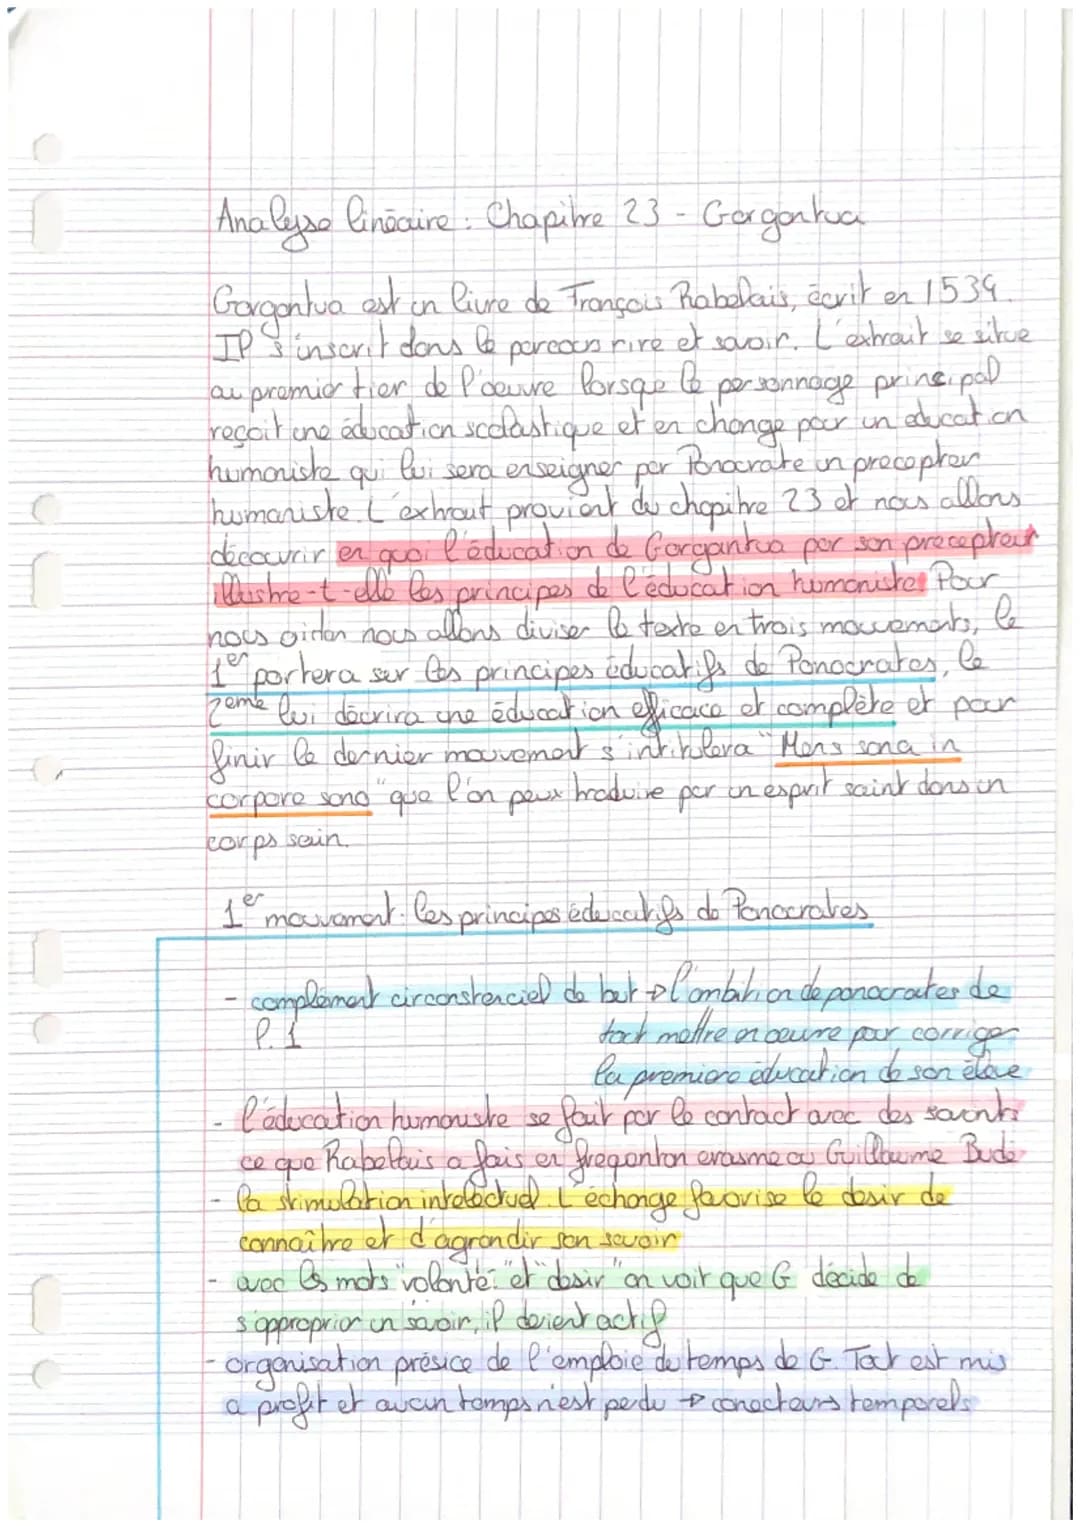 Analyse linéaire : Chapitre 23 - Gargantua
Gargantua est un livre de François Rabelais, écrit en 1534.
Il s'inscrit dans le parcours rire et savoir. L'extrait se situe
au premier tier de l'oeuvre lorsque le personnage principal
reçoit une éducation scolastique et en change pour un education
humaniste qui lui sera enseigner par Ponocrate un precepteur
humaniste. L'extrait provient du chapitre 23 et nous allons
découvrir en quoi l'éducation de Gargantua par son precepteur
illustre-t-elle les principes de l'éducation humaniste? Pour
nous aider nous allons diviser le texte en trois mouvements, le
1er portera sur les principes éducatifs de Ponocrates, le
2eme lui décrira une éducation efficace et complète et pour
finir le dernier mouvement s'intitulera "Mens sana in
corpore sano" que l'on peux traduire par un esprit saint dans un
corps sain.
1er mouvement: les principes éducatifs de Ponocrates
- complément circonstenciel de but → l'ambition de ponocrates de
l. 1 tout mettre en oeuvre pour corriger
la premiere éducation de son élève
- l'éducation humaniste se fait par le contact avec des savants
ce que Rabelais a fais en fregantan erasme ou Guillaume Budé
- la stimulation intelectuel. L'échange favorise le desir de
connaître et d'agrandir son savoir
- avec les mots "volonté" et "desir" on voit que G décide de
s'approprier un savoir, il devient actif
- organisation présice de l'emploie du temps de G. Tout est mis
a profit et aucun temps n'est perdu → conecteurs temporels